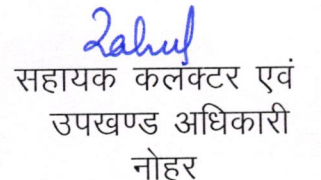 Rahul
सहायक कलक्टर एवं
उपखण्ड अधिकारी
नोहर